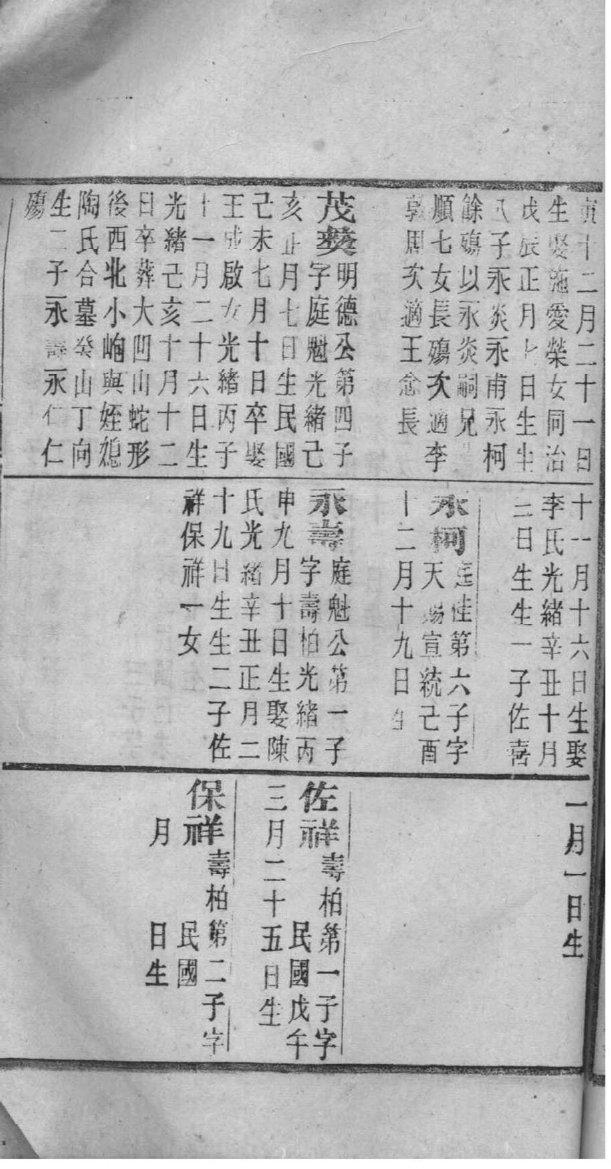 寅十二月二十一日
生娶施愛榮女同治
戊辰正月七日生生
八子永炎永甫永柯
餘殤以永炎嗣兄
順七女長殤次適李
郭周次適王念長
茂獎明德公第四子
字庭魁光緒己
亥正月七日生民國
己未七月十日卒娶
王成啟女光緒丙子
十一月二十六日生
光緒己亥十月十二
日卒葬大凹山蛇形
後西北小崎與姪媳
陶氏合墓癸山丁向
生二子永壽永仁仁
殤
十一月十六日生娶
李氏光緒辛丑十月
二日生生一子佐喜
永柯庭佳第六子字
天賜宣統己酉
十二月十九日生
永壽庭魁公第一子
字壽柏光緒丙
申九月十日生娶陳
氏光緒辛丑正月二
十九日生生二子佐
祥保祥一女
一月一日生
佐祥壽柏第一子字
民國戊午
三月二十五日生
保祥壽柏第二子字
民國
月 日生